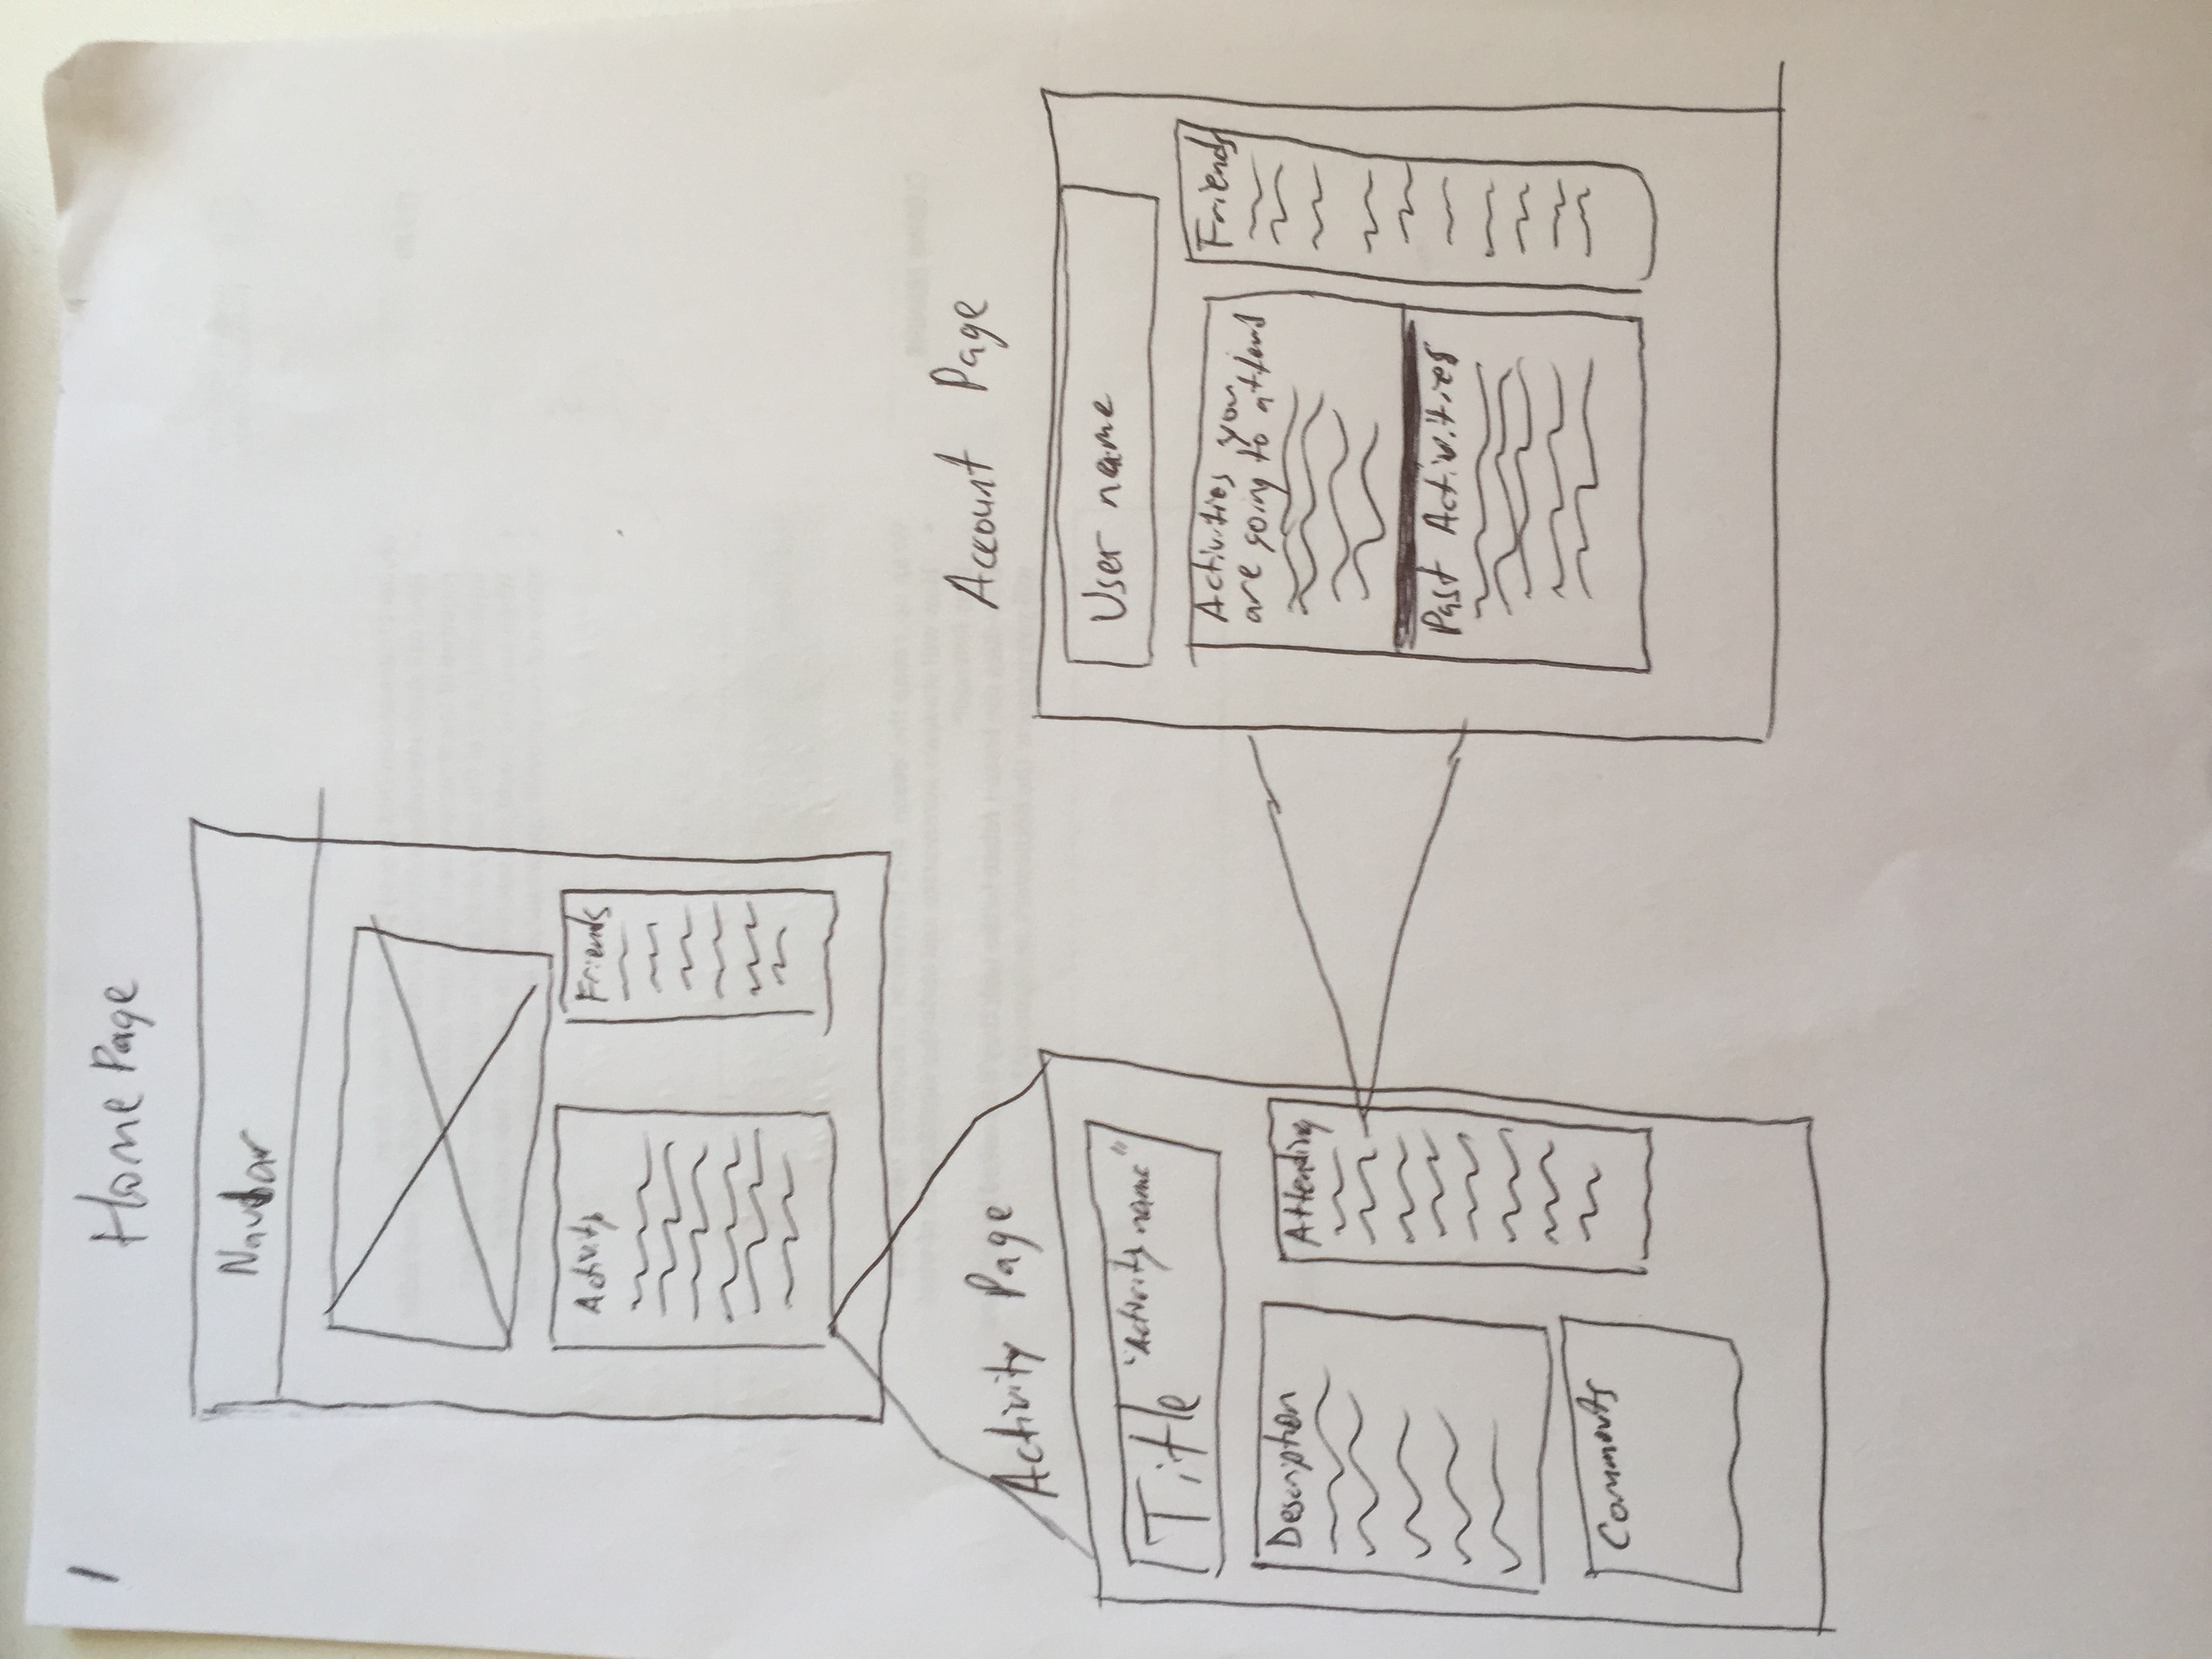 1
Home Page
Navbar
Activity
Friends
Activity Page
Title "Activity name"
Description
Attending
Comments
Account Page
User name
Activities you
are going to attend
Friends
Past Activities